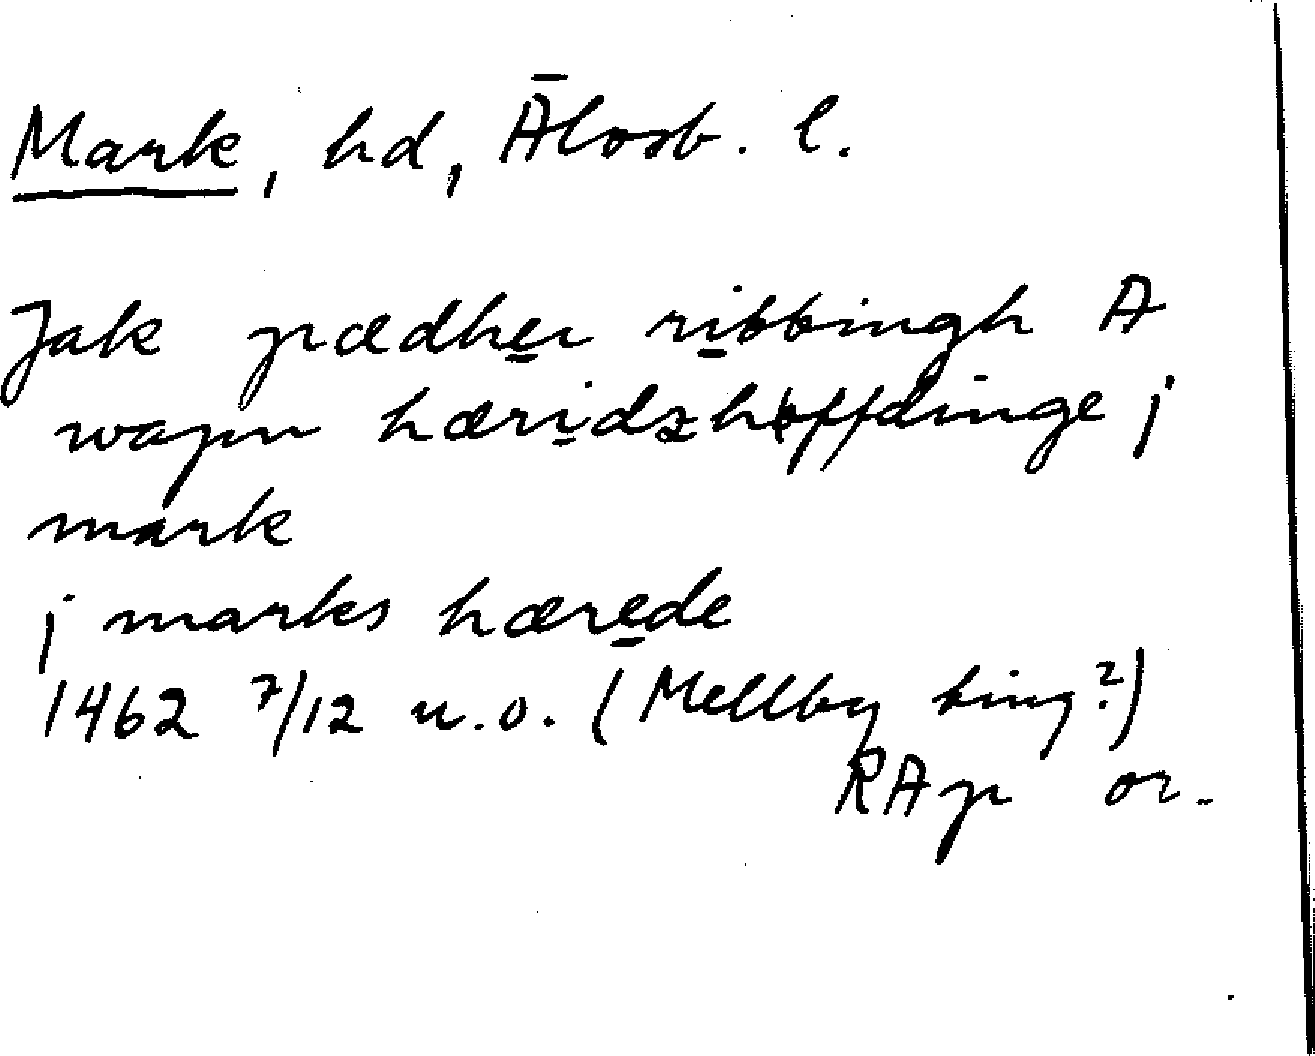 Mark, hd, Älvsb. l.
Jak pædher ribbingh A
wapn hæridzhøffdinge j
mark
j marks hærede
1462 7/12 u.o. (Mellby ting?)
RAp or.